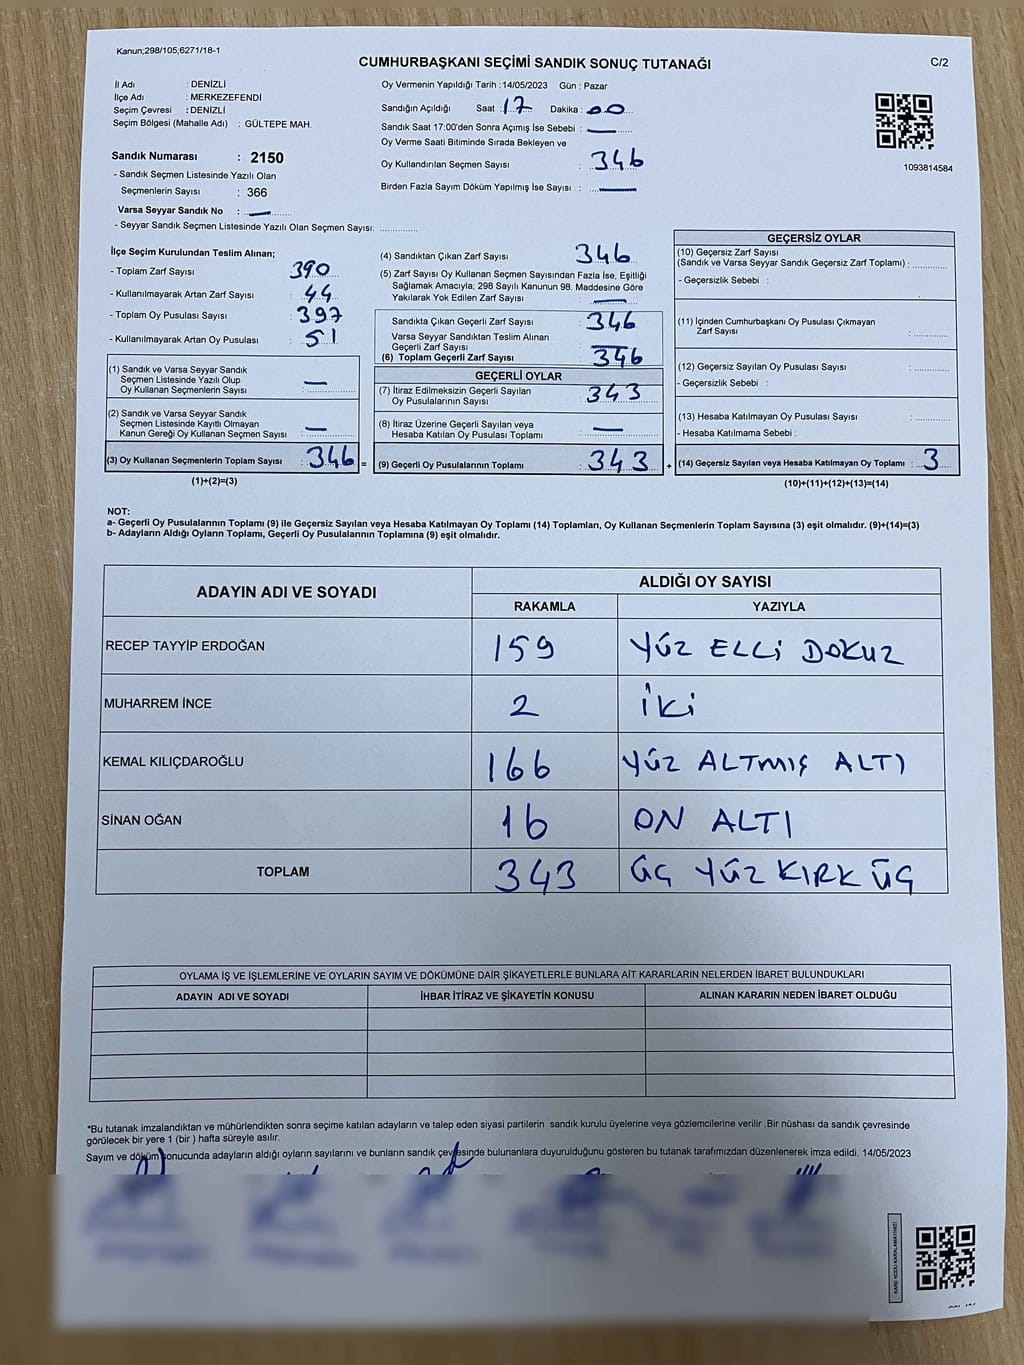 Kanun;298/105;6271/18-1
CUMHURBAŞKANI SEÇİMİ SANDIK SONUÇ TUTANAĞI
C/2
İl Adı : DENİZLİ
İlçe Adı : MERKEZEFENDİ
Seçim Çevresi : DENİZLİ
Seçim Bölgesi (Mahalle Adı) : GÜLTEPE MAH.
Sandık Numarası : 2150
- Sandık Seçmen Listesinde Yazılı Olan
Seçmenlerin Sayısı : 366
Varsa Seyyar Sandık No : —
- Seyyar Sandık Seçmen Listesinde Yazılı Olan Seçmen Sayısı:
Oy Vermenin Yapıldığı Tarih : 14/05/2023 Gün : Pazar
Sandığın Açıldığı Saat : 17 Dakika : 00
Sandık Saat 17:00'den Sonra Açımış İse Sebebi : —
Oy Verme Saati Bitiminde Sırada Bekleyen ve
Oy Kullandırılan Seçmen Sayısı : 346
Birden Fazla Sayım Döküm Yapılmış İse Sayısı : —
1093814584
İlçe Seçim Kurulundan Teslim Alınan;
- Toplam Zarf Sayısı : 390
- Kullanılmayarak Artan Zarf Sayısı : 44
- Toplam Oy Pusulası Sayısı : 397
- Kullanılmayarak Artan Oy Pusulası : 51
(1) Sandık ve Varsa Seyyar Sandık
Seçmen Listesinde Yazılı Olup
Oy Kullanan Seçmenlerin Sayısı : —
(2) Sandık ve Varsa Seyyar Sandık
Seçmen Listesinde Kayıtlı Olmayan
Kanun Gereği Oy Kullanan Seçmen Sayısı : —
(3) Oy Kullanan Seçmenlerin Toplam Sayısı : 346 =
(1)+(2)=(3)
(4) Sandıktan Çıkan Zarf Sayısı : 346
(5) Zarf Sayısı Oy Kullanan Seçmen Sayısından Fazla İse, Eşitliği
Sağlamak Amacıyla; 298 Sayılı Kanunun 98. Maddesine Göre
Yakılarak Yok Edilen Zarf Sayısı : —
Sandıkta Çıkan Geçerli Zarf Sayısı : 346
Varsa Seyyar Sandıktan Teslim Alınan
Geçerli Zarf Sayısı : —
(6) Toplam Geçerli Zarf Sayısı : 346
GEÇERLİ OYLAR
(7) İtiraz Edilmeksizin Geçerli Sayılan
Oy Pusulalarının Sayısı : 343
(8) İtiraz Üzerine Geçerli Sayılan veya
Hesaba Katılan Oy Pusulası Toplamı : —
(9) Geçerli Oy Pusulalarının Toplamı : 343 +
GEÇERSİZ OYLAR
(10) Geçersiz Zarf Sayısı
(Sandık ve Varsa Seyyar Sandık Geçersiz Zarf Toplamı) :
- Geçersizlik Sebebi :
(11) İçinden Cumhurbaşkanı Oy Pusulası Çıkmayan
Zarf Sayısı :
(12) Geçersiz Sayılan Oy Pusulası Sayısı :
- Geçersizlik Sebebi :
(13) Hesaba Katılmayan Oy Pusulası Sayısı :
- Hesaba Katılmama Sebebi :
(14) Geçersiz Sayılan veya Hesaba Katılmayan Oy Toplamı : 3
(10)+(11)+(12)+(13)=(14)
NOT:
a- Geçerli Oy Pusulalarının Toplamı (9) ile Geçersiz Sayılan veya Hesaba Katılmayan Oy Toplamı (14) Toplamları, Oy Kullanan Seçmenlerin Toplam Sayısına (3) eşit olmalıdır. (9)+(14)=(3)
b- Adayların Aldığı Oyların Toplamı, Geçerli Oy Pusulalarının Toplamına (9) eşit olmalıdır.
ADAYIN ADI VE SOYADI
ALDIĞI OY SAYISI
RAKAMLA YAZIYLA
RECEP TAYYİP ERDOĞAN 159 YÜZ ELLİ DOKUZ
MUHARREM İNCE 2 İKİ
KEMAL KILIÇDAROĞLU 166 YÜZ ALTMIŞ ALTI
SİNAN OĞAN 16 ON ALTI
TOPLAM 343 ÜÇ YÜZ KIRK ÜÇ
OYLAMA İŞ VE İŞLEMLERİNE VE OYLARIN SAYIM VE DÖKÜMÜNE DAİR ŞİKAYETLERLE BUNLARA AİT KARARLARIN NELERDEN İBARET BULUNDUKLARI
ADAYIN ADI VE SOYADI İHBAR İTİRAZ VE ŞİKAYETİN KONUSU ALINAN KARARIN NEDEN İBARET OLDUĞU
*Bu tutanak imzalandıktan ve mühürlendikten sonra seçime katılan adayların ve talep eden siyasi partilerin sandık kurulu üyelerine veya gözlemcilerine verilir .Bir nüshası da sandık çevresinde
görülecek bir yere 1 (bir ) hafta süreyle asılır.
Sayım ve döküm sonucunda adayların aldığı oyların sayılarını ve bunların sandık çevresinde bulunanlara duyurulduğunu gösteren bu tutanak tarafımızdan düzenlenerek imza edildi. 14/05/2023
KARE KODU KARALAMAYINIZ!